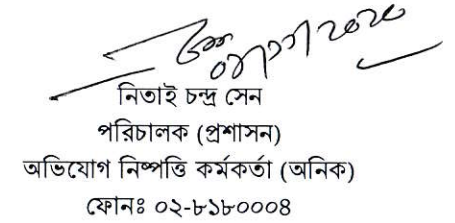 নিতাই চন্দ্র সেন
পরিচালক (প্রশাসন)
অভিযোগ নিষ্পত্তি কর্মকর্তা (অনিক)
ফোনঃ ০২-৮১৮০০০৪